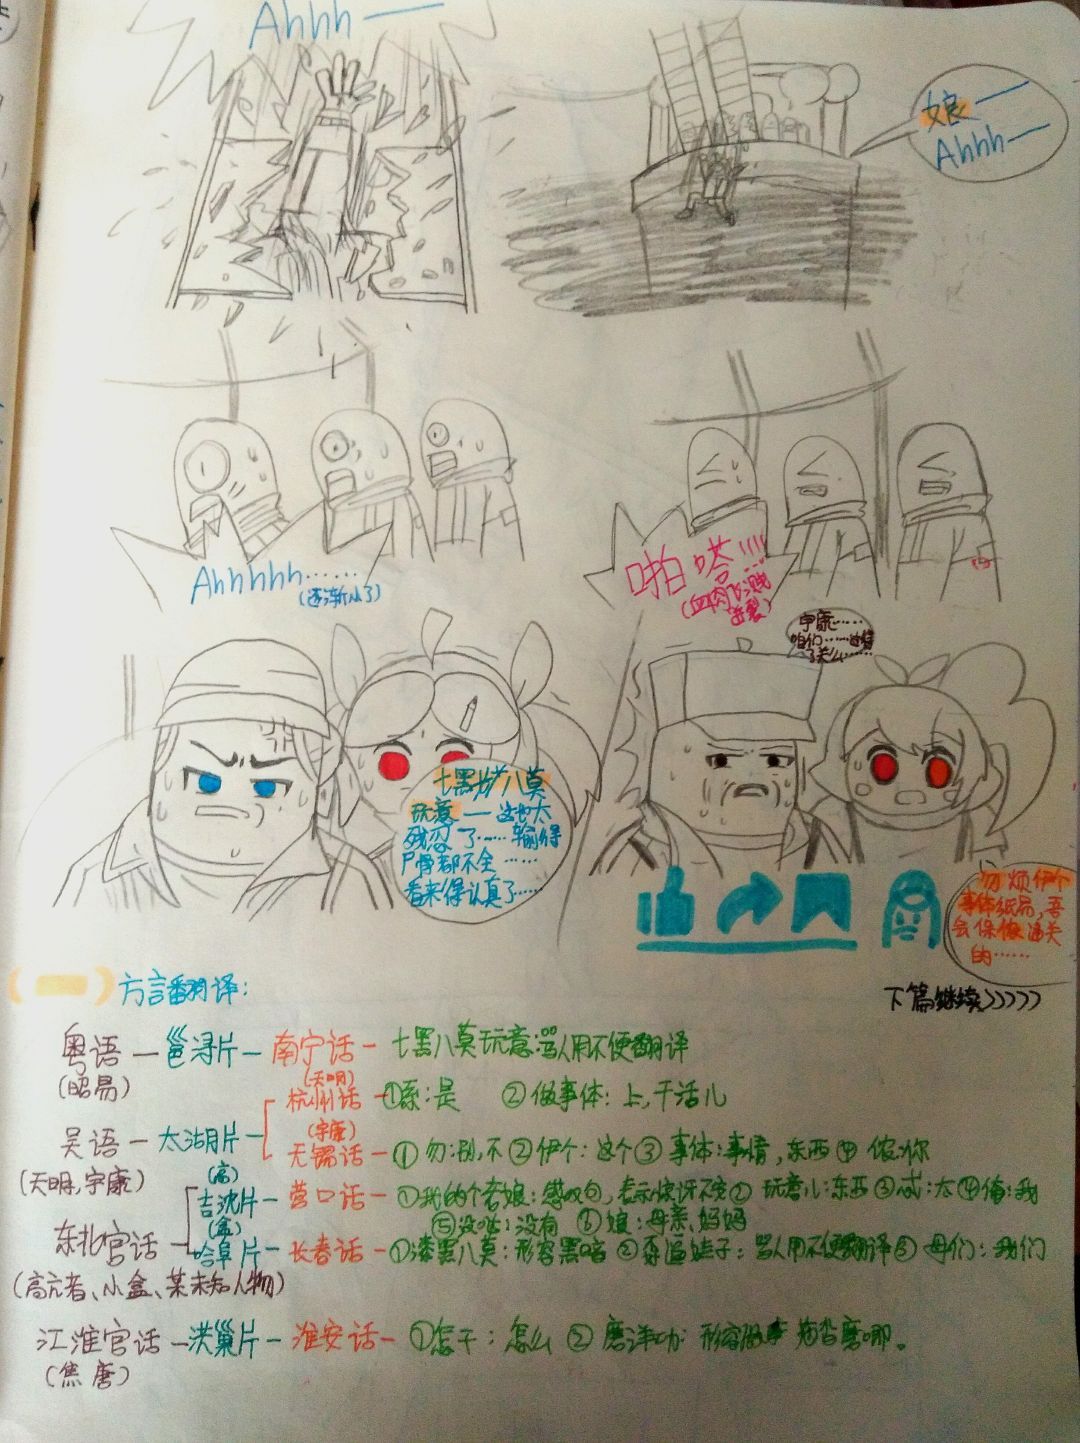 Ahhh —
娘—
Ahhh—
Ahhhhh……
(逐渐小了)
啪嗒!!!!
(血肉飞溅
宇康……
咱们……
七黑八莫
玩意——这也太
残忍了……输得
尸骨都不全……
看来得认真了……
勿烦伊个
事体
会保侬通关
的……
下篇继续>>>>>
(一)方言翻译:
粤语—邕浔片—南宁话—七黑八莫玩意:骂人用不便翻译
(昭易)
(天明)
杭州话—①系:是 ②做事体:上,干活儿
吴语—太湖片
(宇康)
无锡话—①勿:别,不②伊个:这个③事体:事情,东西④侬:你
(天明,宇康)
(高)
吉沈片—营口话—①我的个老娘:感叹句,表示惊讶不安②玩意儿:东西③忒:太④俺:我
⑤没啥:没有 ⑥娘:母亲,妈妈
东北官话
(盒)
哈阜片—长春话—①漆黑八莫:形容黑暗②瘪逼娃子:骂人用不便翻译③母们:我们
(高亢者、小盒、某未知人物)
江淮官话—洪巢片—淮安话—①怎干:怎么②磨洋功:形容做事拖沓磨叽。
(焦唐)